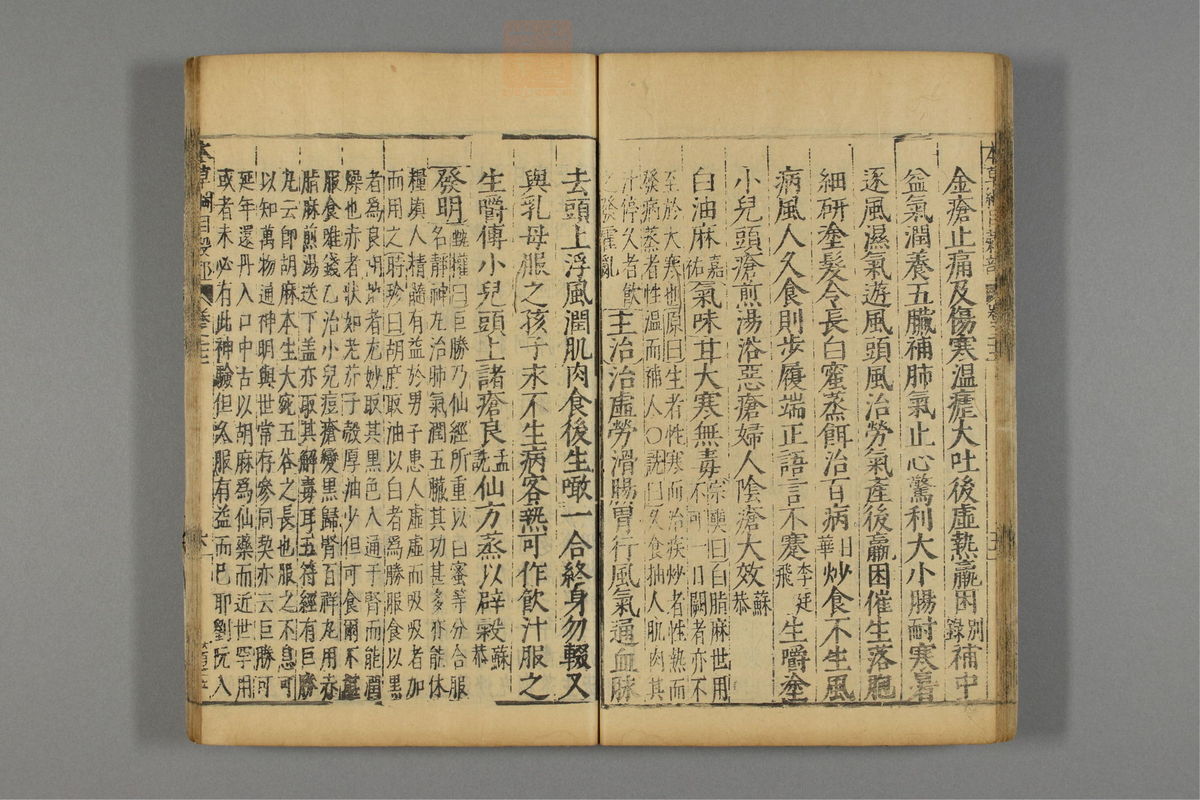 金瘡止痛及傷寒溫瘧大吐後虛熱羸困別錄補中
益氣潤養五臟補肺氣止心驚利大小腸耐寒暑
逐風濕氣遊風頭風治勞氣產後羸困催生落胞
細研塗髮令長白蜜蒸餌治百病日華炒食不生風
病風人久食則步履端正語言不蹇李廷飛生嚼塗
小兒頭瘡煎湯浴惡瘡婦人陰瘡大效蘇恭
白油麻嘉祐氣味甘大寒無毒宗奭曰白脂麻世用不可一日闕者亦不
至於大寒也原曰生者性寒而治疾炒者性熱而
發病蒸者性溫而補人〇詵曰久食抽人肌肉其
汁停久者飲之發霍亂主治治虛勞滑腸胃行風氣通血脉
去頭上浮風潤肌肉食後生噉一合終身勿輟又
與乳母服之孩子末不生病客熱可作飲汁服之
生嚼傅小兒頭上諸瘡良孟詵仙方蒸以辟穀蘇恭
發明甄權曰巨勝乃仙經所重以白蜜等分合服
名靜神丸治肺氣潤五臟其功甚多亦能休
糧填人精髓有益於男子患人虛虛而吸吸者加
而用之時珍曰胡麻取油以白者爲勝服食以黑
者爲良胡地者尤妙取其黑色入通于腎而能潤
燥也赤者狀如老茄子殼厚油少但可食爾不堪
服食唯錢乙治小兒痘瘡變黑歸腎百祥丸用赤
脂麻煎湯送下盖亦取其解毒耳五符經有巨勝
丸云卽胡麻本生大宛五谷之長也服之不息可
以知萬物通神明與世常存參同契亦云巨勝可
延年還丹入口中古以胡麻爲仙藥而近世罕用
或者未必有此神驗但久服有益而巳耶劉阮入
本草綱目穀部 卷之二十二